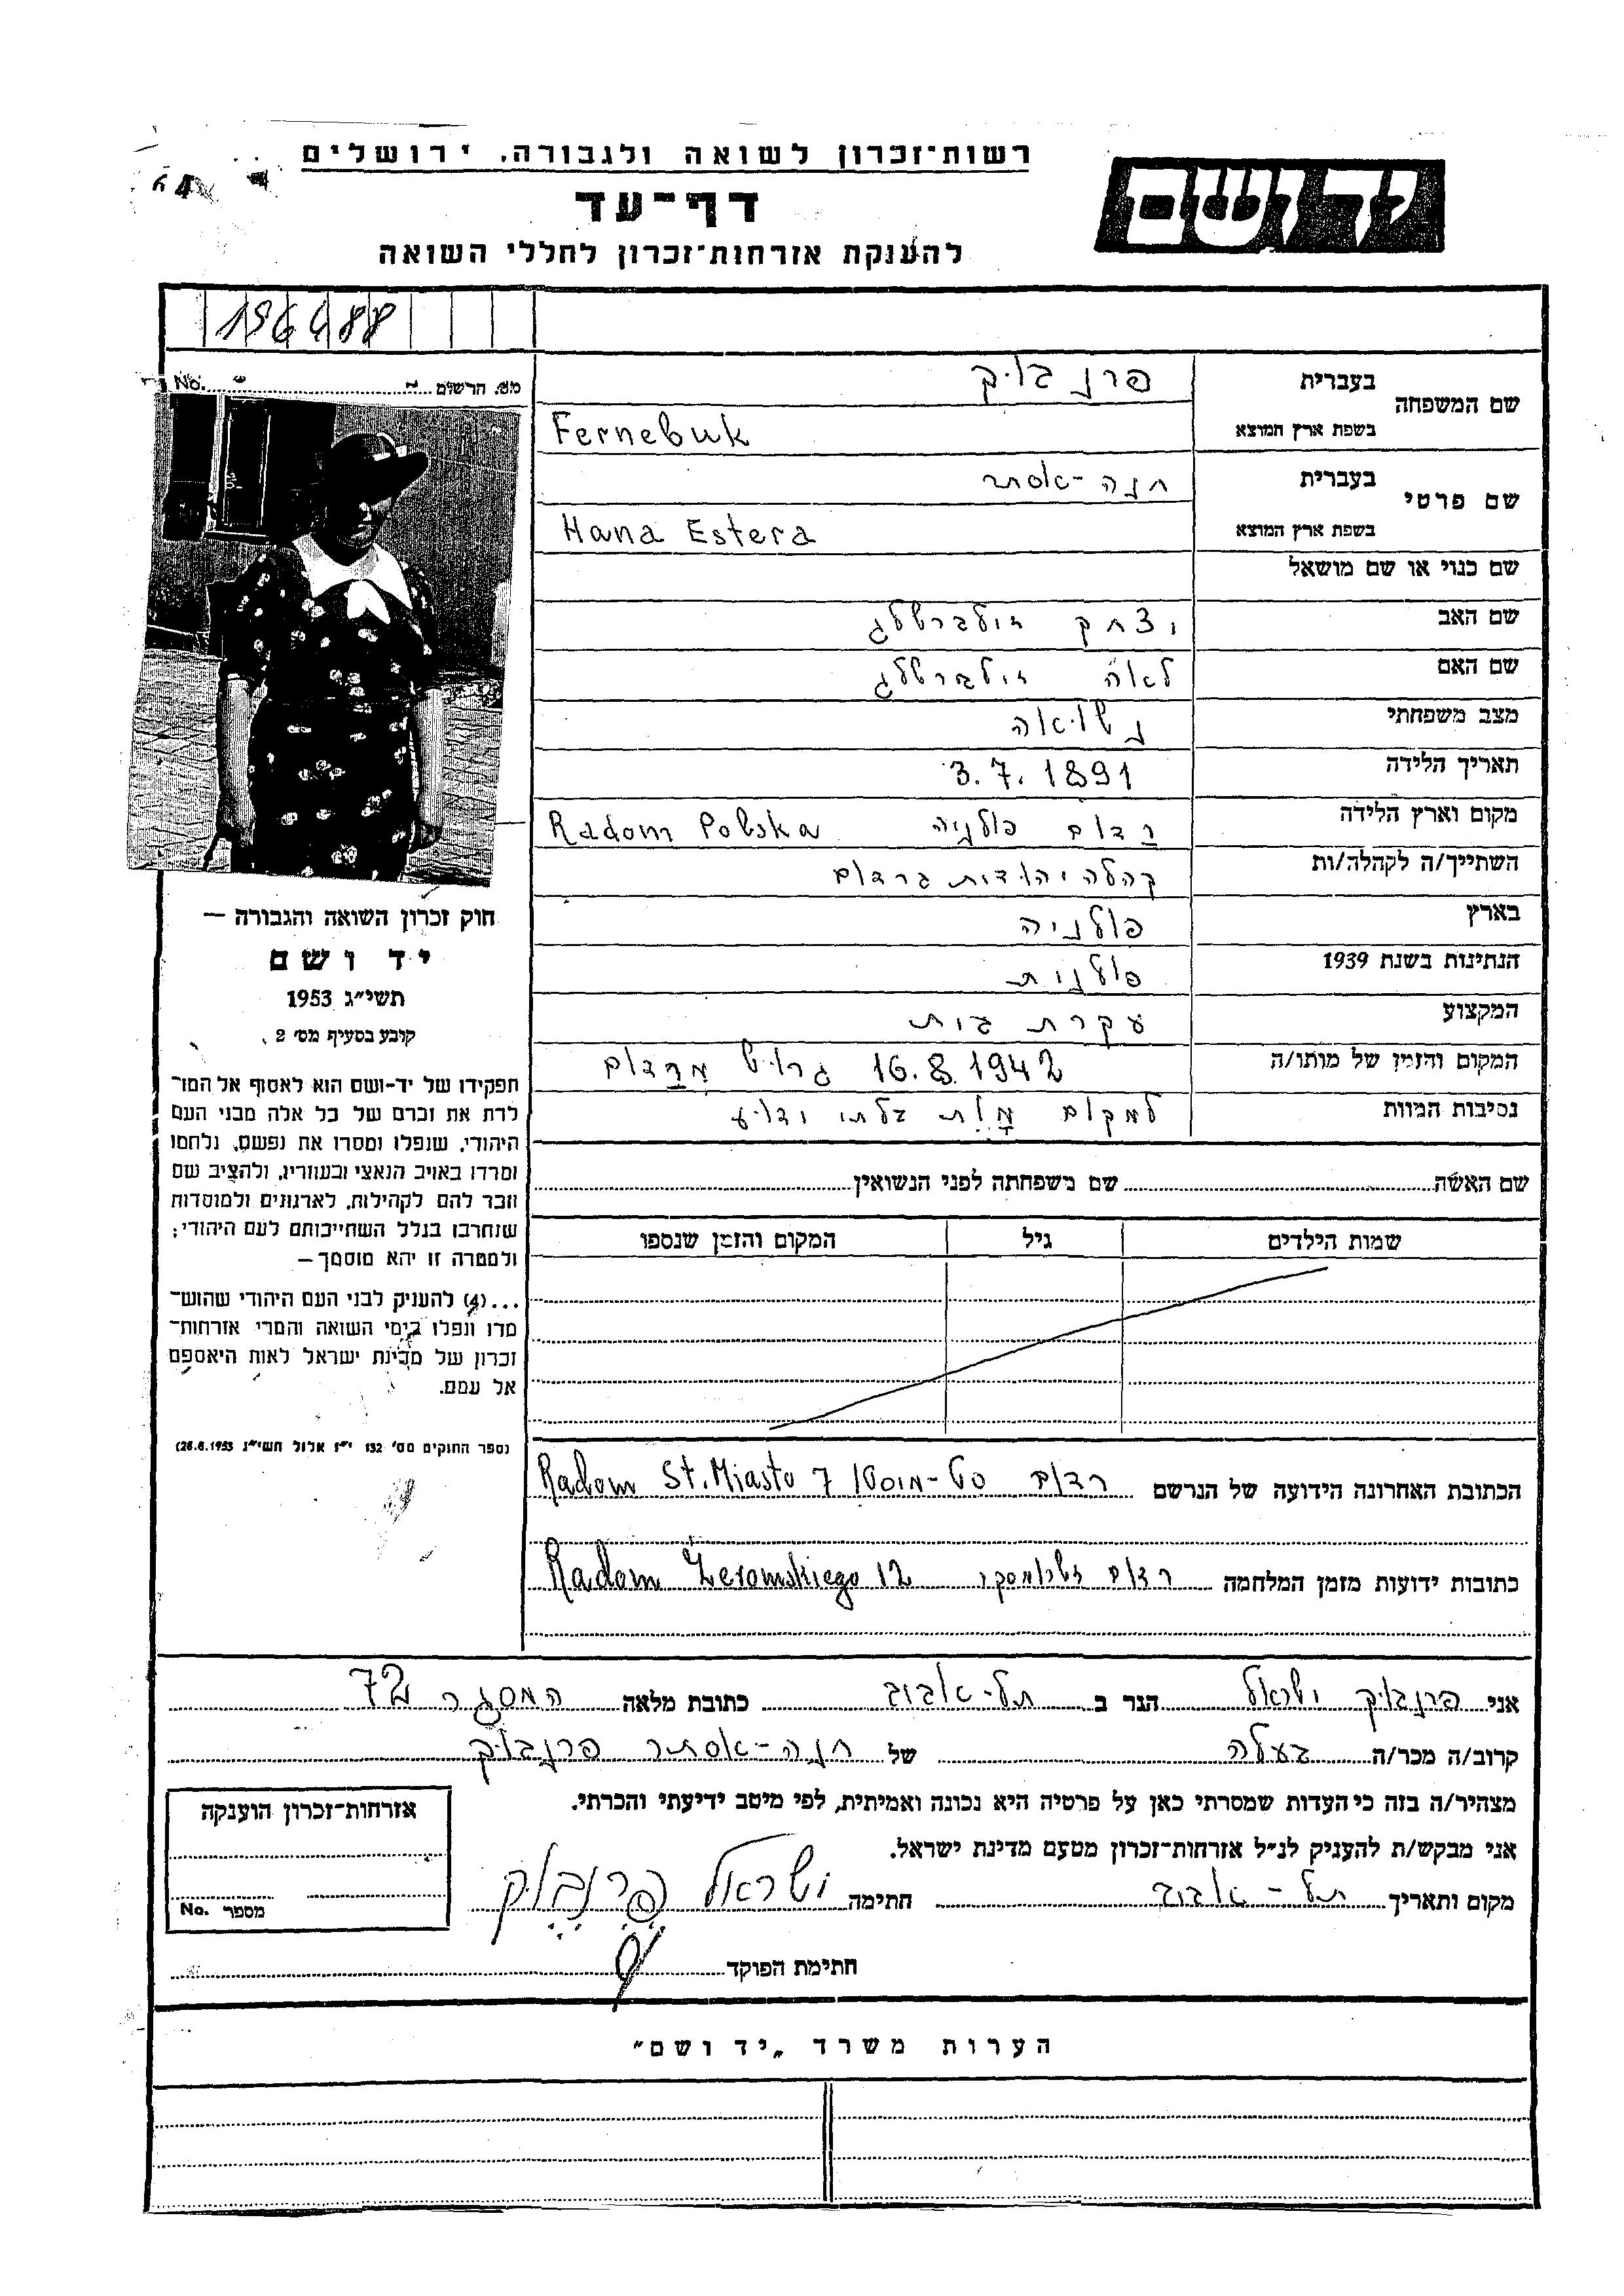 רשות־זכרון לשואה ולגבורה, ירושלים
דף־עד
להענקת אזרחות־זכרון לחללי השואה
יד ושם
64
196488
No. מס. הרשום
שם המשפחה
בעברית
פרנבוק
בשפת ארץ המוצא
Fernebuk
שם פרטי
בעברית
חנה-אסתר
בשפת ארץ המוצא
Hana Estera
שם כנוי או שם מושאל
שם האב יצחק זילברשלג
שם האם לאה זילברשלג
מצב משפחתי נשואה
תאריך הלידה 3.7.1891
מקום וארץ הלידה רדום פולניה Radom Polska
השתייך/ה לקהלה/ות קהלה יהודית ברדום
בארץ פולניה
הנתינות בשנת 1939 פולנית
המקצוע עקרת בית
המקום והזמן של מותו/ה 16.8.1942 גרוש מרדום
נסיבות המוות למקום מות בלתי ידוע
שם האשה שם משפחתה לפני הנשואין
שמות הילדים גיל המקום והזמן שנספו
הכתובת האחרונה הידועה של הנרשם רדום סט-מיסטו Radom St. Miasto 7
כתובות ידועות מזמן המלחמה רדום זשרומסקי Radom Żeromskiego 12
חוק זכרון השואה והגבורה —
יד ושם
תשי״ג 1953
קובע בסעיף מס׳ 2
תפקידו של יד-ושם הוא לאסוף אל המו־
לדת את זכרם של כל אלה מבני העם
היהודי, שנפלו ומסרו את נפשם, נלחמו
ומרדו באויב הנאצי ובעוזריו, ולהציב שם
וזכר להם לקהילות, לארגונים ולמוסדות
שנחרבו בגלל השתייכותם לעם היהודי;
ולמטרה זו יהא מוסמך —
...(4) להעניק לבני העם היהודי שהוש־
מדו ונפלו בימי השואה והמרי אזרחות־
זכרון של מדינת ישראל לאות היאספם
אל עמם.
(ספר החוקים מס׳ 132 י״ז אלול תשי״ג 28.8.1953)
אני פרנבוק ישראל הגר ב תל-אביב כתובת מלאה המסגר 72
קרוב/ה מכר/ה בעלה של חנה-אסתר פרנבוק
מצהיר/ה בזה כי העדות שמסרתי כאן על פרטיה היא נכונה ואמיתית, לפי מיטב ידיעתי והכרתי.
אני מבקש/ת להעניק לנ״ל אזרחות־זכרון מטעם מדינת ישראל.
מקום ותאריך תל-אביב חתימה ישראל פרנבוק
חתימת הפוקד
אזרחות־זכרון הוענקה
מספר No.
הערות משרד „יד ושם״